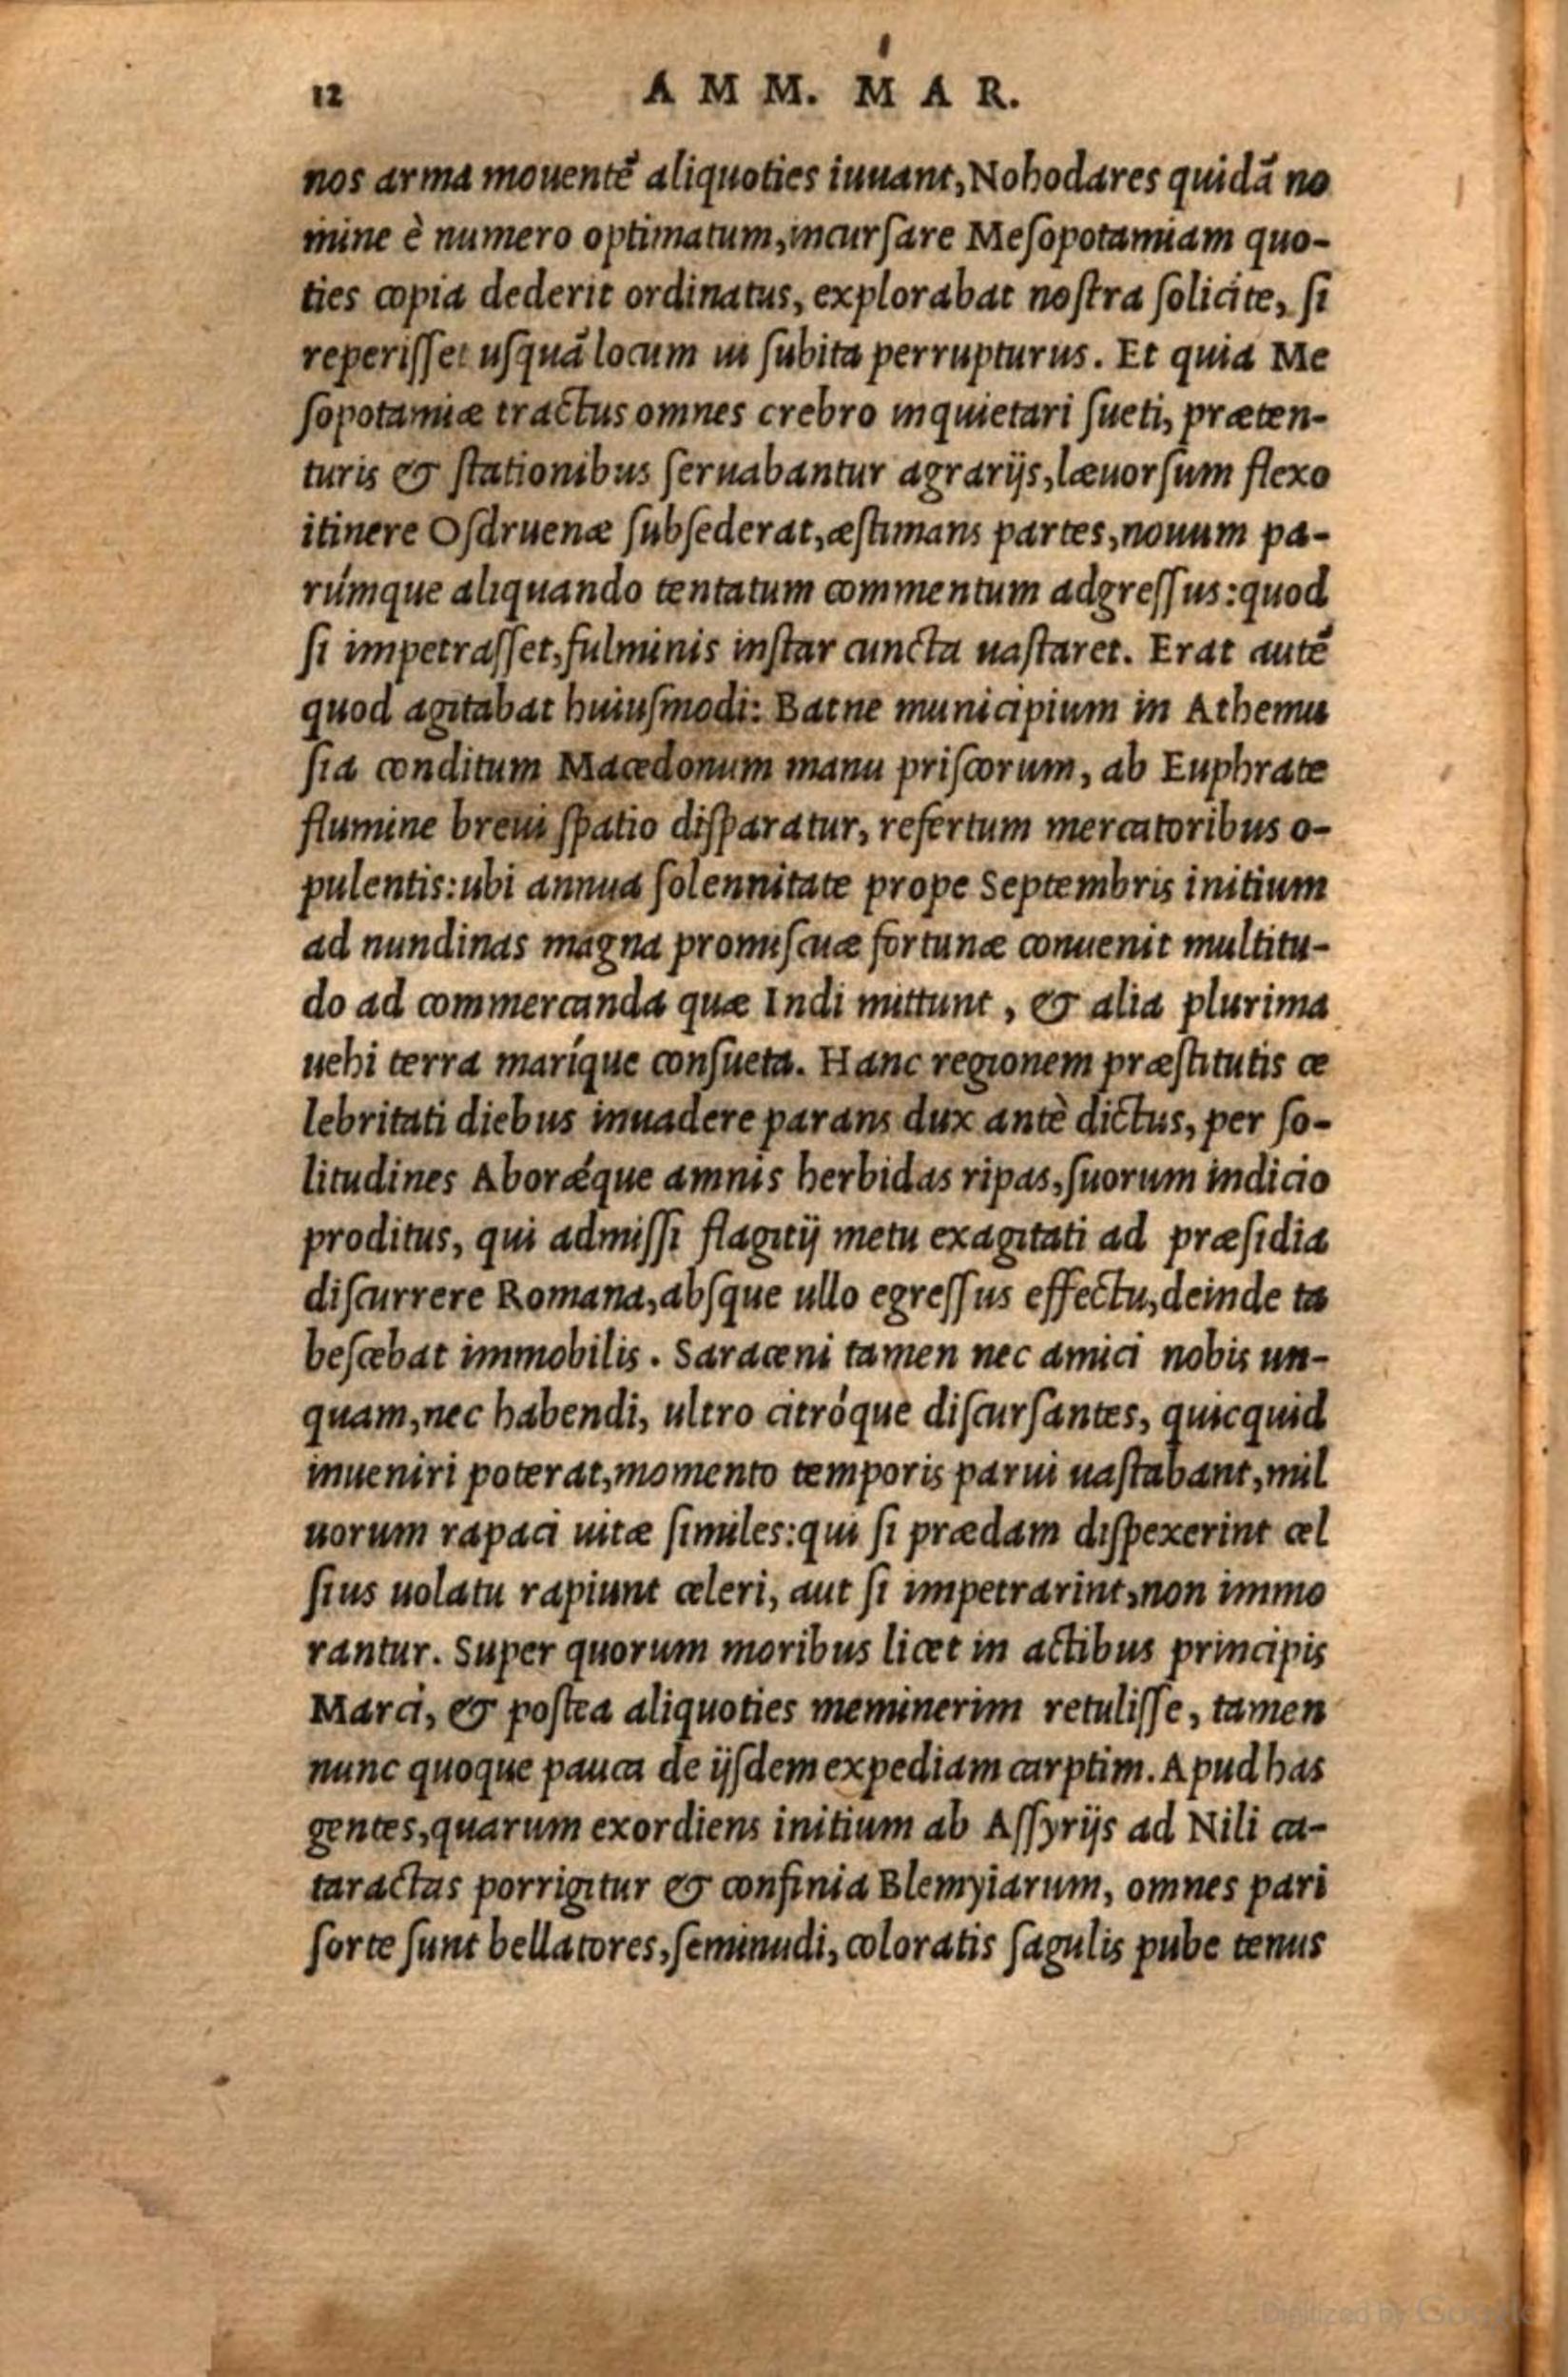 12 AMM. MAR.
nos arma mouentẽ aliquoties iuuant, Nohodares quidã no
mine è numero optimatum, incurſare Meſopotamiam quo-
ties copia dederit ordinatus, explorabat noſtra ſolicite, ſi
reperiſſet uſquã locum ui ſubita perrupturus. Et quia Me
ſopotamiæ tractus omnes crebro inquietari ſueti, præten-
turis & ſtationibus ſeruabantur agrarijs, læuorſum flexo
itinere Oſdruenæ ſubſederat, æſtimans partes, nouum pa-
rúmque aliquando tentatum commentum adgreſſus: quod
ſi impetraſſet, fulminis inſtar cuncta uaſtaret. Erat autẽ
quod agitabat huiuſmodi: Batne municipium in Athemu
ſia conditum Macedonum manu priſcorum, ab Euphrate
flumine breui ſpatio diſparatur, refertum mercatoribus o-
pulentis: ubi annua ſolennitate prope Septembris initium
ad nundinas magna promiſcuæ fortunæ conuenit multitu-
do ad commercanda quæ Indi mittunt, & alia plurima
uehi terra maríque conſueta. Hanc regionem præſtitutis ce
lebritati diebus inuadere parans dux antè dictus, per ſo-
litudines Aborǽque amnis herbidas ripas, ſuorum indicio
proditus, qui admiſſi flagitij metu exagitati ad præſidia
diſcurrere Romana, abſque ullo egreſſus effectu, deinde ta
beſcebat immobilis. Saraceni tamen nec amici nobis un-
quam, nec habendi, ultro citróque diſcurſantes, quicquid
inueniri poterat, momento temporis parui uaſtabant, mil
uorum rapaci uitæ ſimiles: qui ſi prædam diſpexerint cel
ſius uolatu rapiunt celeri, aut ſi impetrarint, non immo
rantur. Super quorum moribus licet in actibus principis
Marci, & poſtea aliquoties meminerim retuliſſe, tamen
nunc quoque pauca de ijſdem expediam carptim. Apud has
gentes, quarum exordiens initium ab Aſſyrijs ad Nili ca-
taractas porrigitur & confinia Blemyiarum, omnes pari
ſorte ſunt bellatores, ſeminudi, coloratis ſagulis pube tenus
Digitized by Google